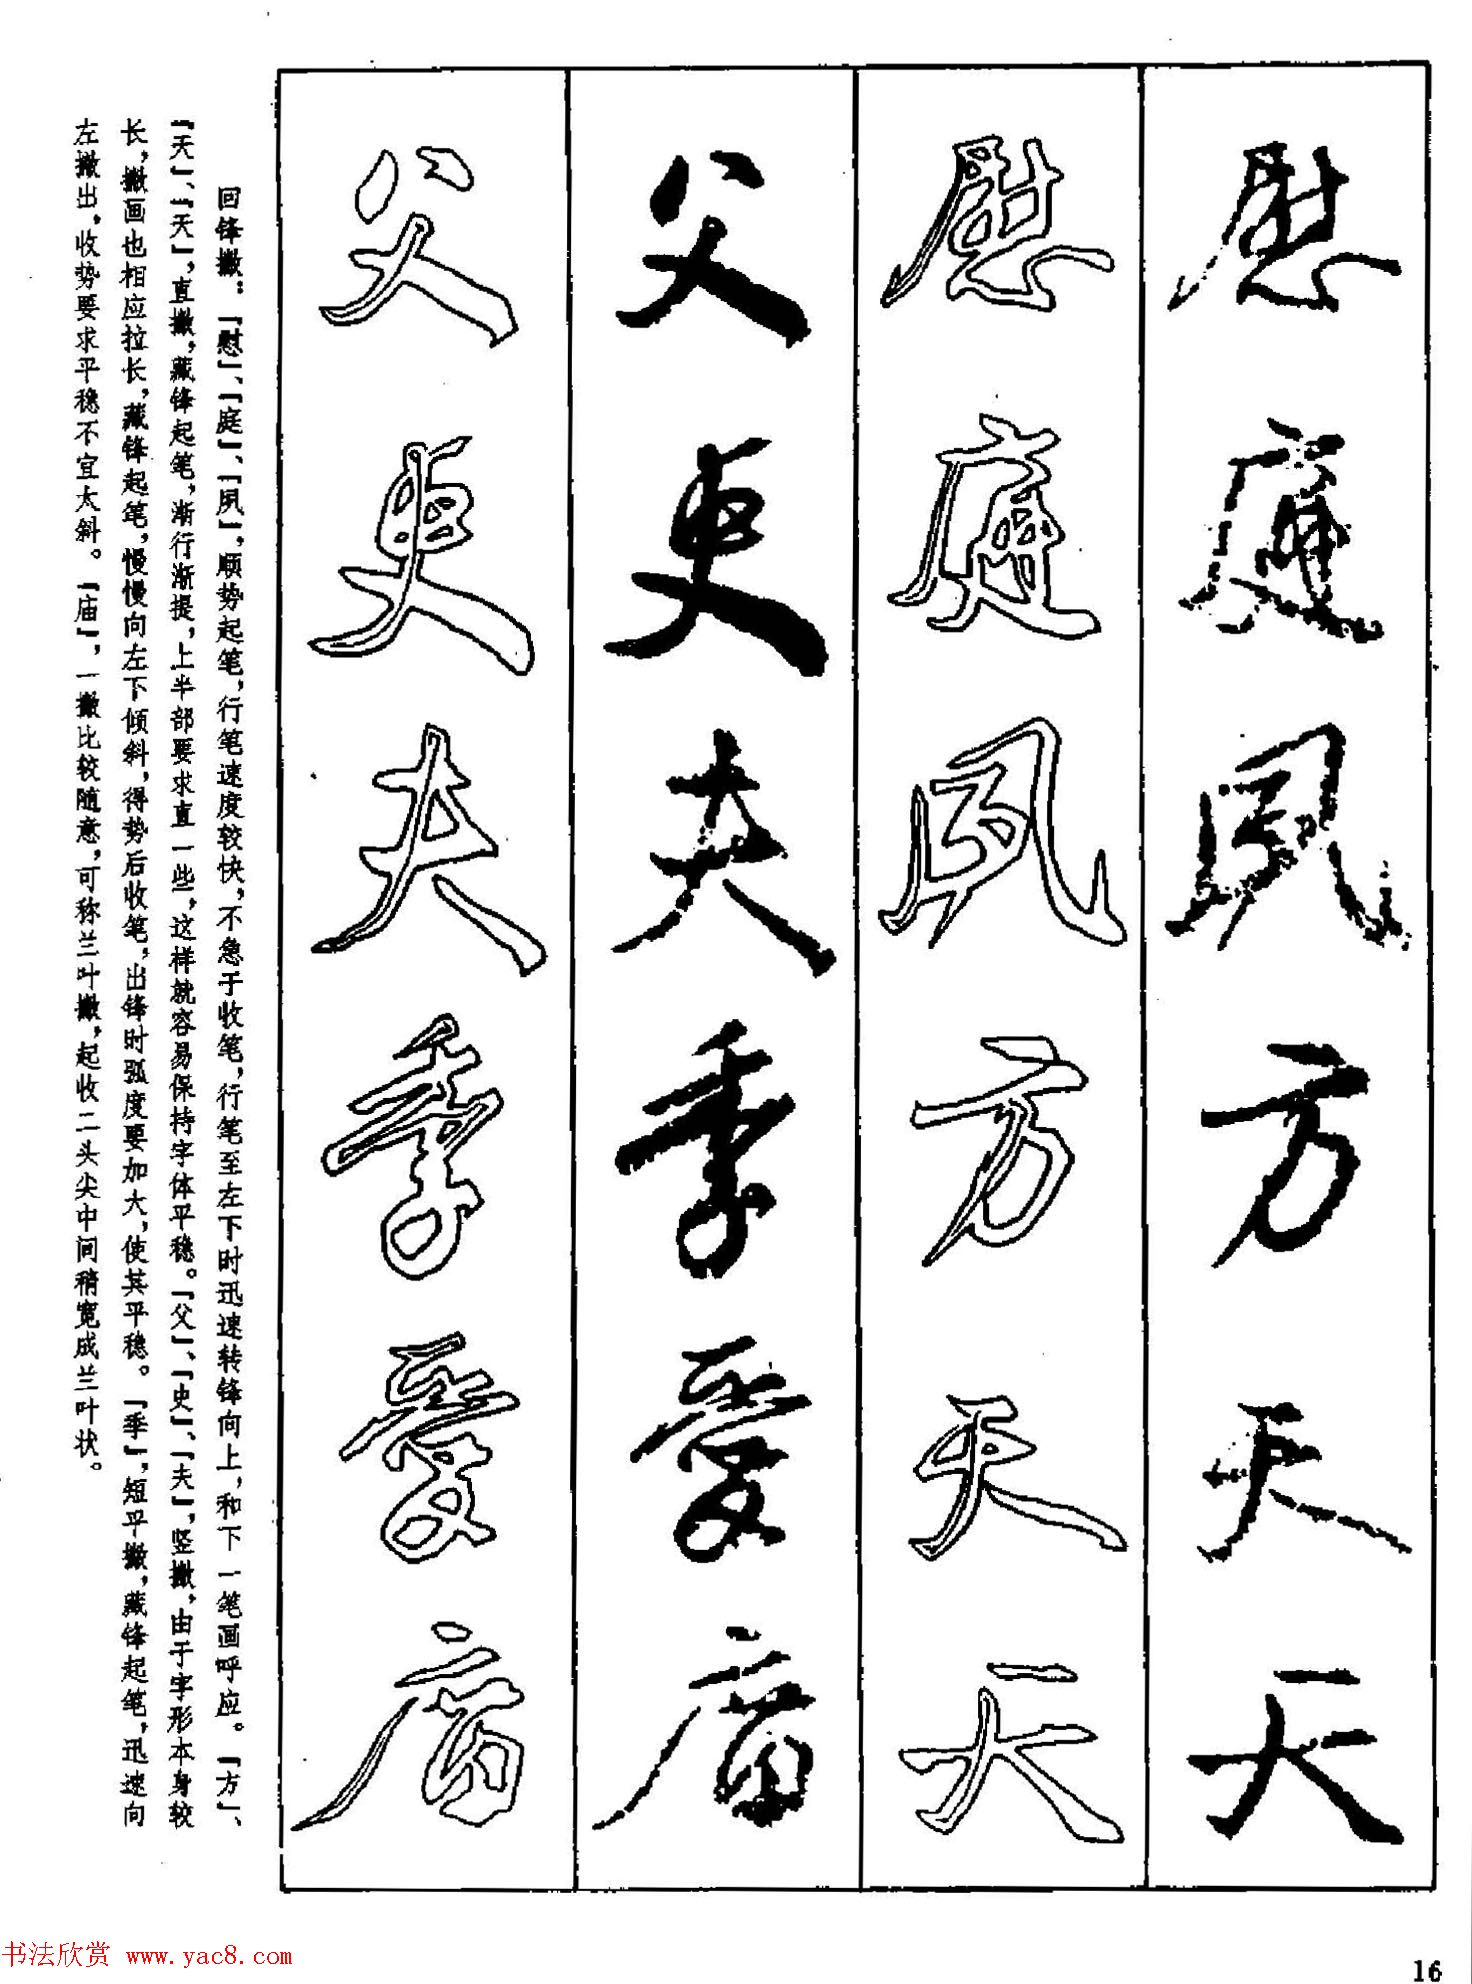 慰庭夙方天天
慰庭夙方天天
父更夫季愛庿
父更夫季愛庿
回锋撇：「慰」、「庭」、「夙」，顺势起笔，行笔速度较快，不急于收笔，行笔至左下时迅速转锋向上，和下一笔画呼应。「方」、
「天」、「天」，直撇，藏锋起笔，渐行渐提，上半部要求直一些，这样就容易保持字体平稳。「父」、「史」、「夫」，竖撇，由于字形本身较
长，撇画也相应拉长，藏锋起笔，慢慢向左下倾斜，得势后收笔，出锋时弧度要加大，使其平稳。「季」，短平撇，藏锋起笔，迅速向
左撇出，收势要求平稳不宜太斜。「庙」，一撇比较随意，可称兰叶撇，起收二头尖中间稍宽成兰叶状。
书法欣赏 www.yac8.com
16